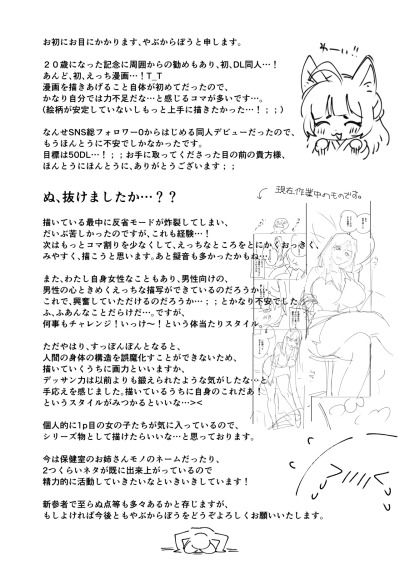 お初にお目にかかります、やぶからぼうと申します。
２０歳になった記念に周囲からの勧めもあり、初、DL同人…！
あんど、初、えっち漫画…！T_T
漫画を描きあげること自体が初めてだったので、
かなり自分では力不足だな…と感じるコマが多いです…。
(絵柄が安定していないしもっと上手に描きたかった…！；；)
わーい!!
なんせSNS総フォロワー0からはじめる同人デビューだったので、
もうほんとうに不安でしかなかったです。
目標は50DL…！；；お手に取ってくださった目の前の貴方様、
ほんとうにほんとうに、ありがとうございます；；
ぬ、抜けましたか…？？
現在、作業中のものです。
描いている最中に反省モードが炸裂してしまい、
だいぶ苦しかったのですが、これも経験…！
次はもっとコマ割りを少なくして、えっちなところをとにかくおっきく、
みやすく、描こうと思います。あと擬音も多かったかもね…
また、わたし自身女性なこともあり、男性向けの、
男性の心ときめくえっちな描写ができているのだろうか…。
これで、興奮していただけるのだろうか…；；とかなり不安でした。
ふ、ふあんなことだらけだ…。ですが、
何事もチャレンジ！いっけ〜！という体当たりスタイル。
ただやはり、すっぽんぽんとなると、
人間の身体の構造を誤魔化すことができないため、
描いていくうちに画力といいますか、
デッサン力は以前よりも鍛えられたような気がしたな…と
手応えを感じました。描いているうちに自身のこれだあ！
というスタイルがみつかるといいな…><
個人的に1p目の女の子たちが気に入っているので、
シリーズ物として描けたらいいな…と思っております。
今は保健室のお姉さんモノのネームだったり、
2つくらいネタが既に出来上がっているので
精力的に活動していきたいなといきいきしています！
新参者で至らぬ点等も多々あるかと存じますが、
もしよければ今後ともやぶからぼうをどうぞよろしくお願いいたします。